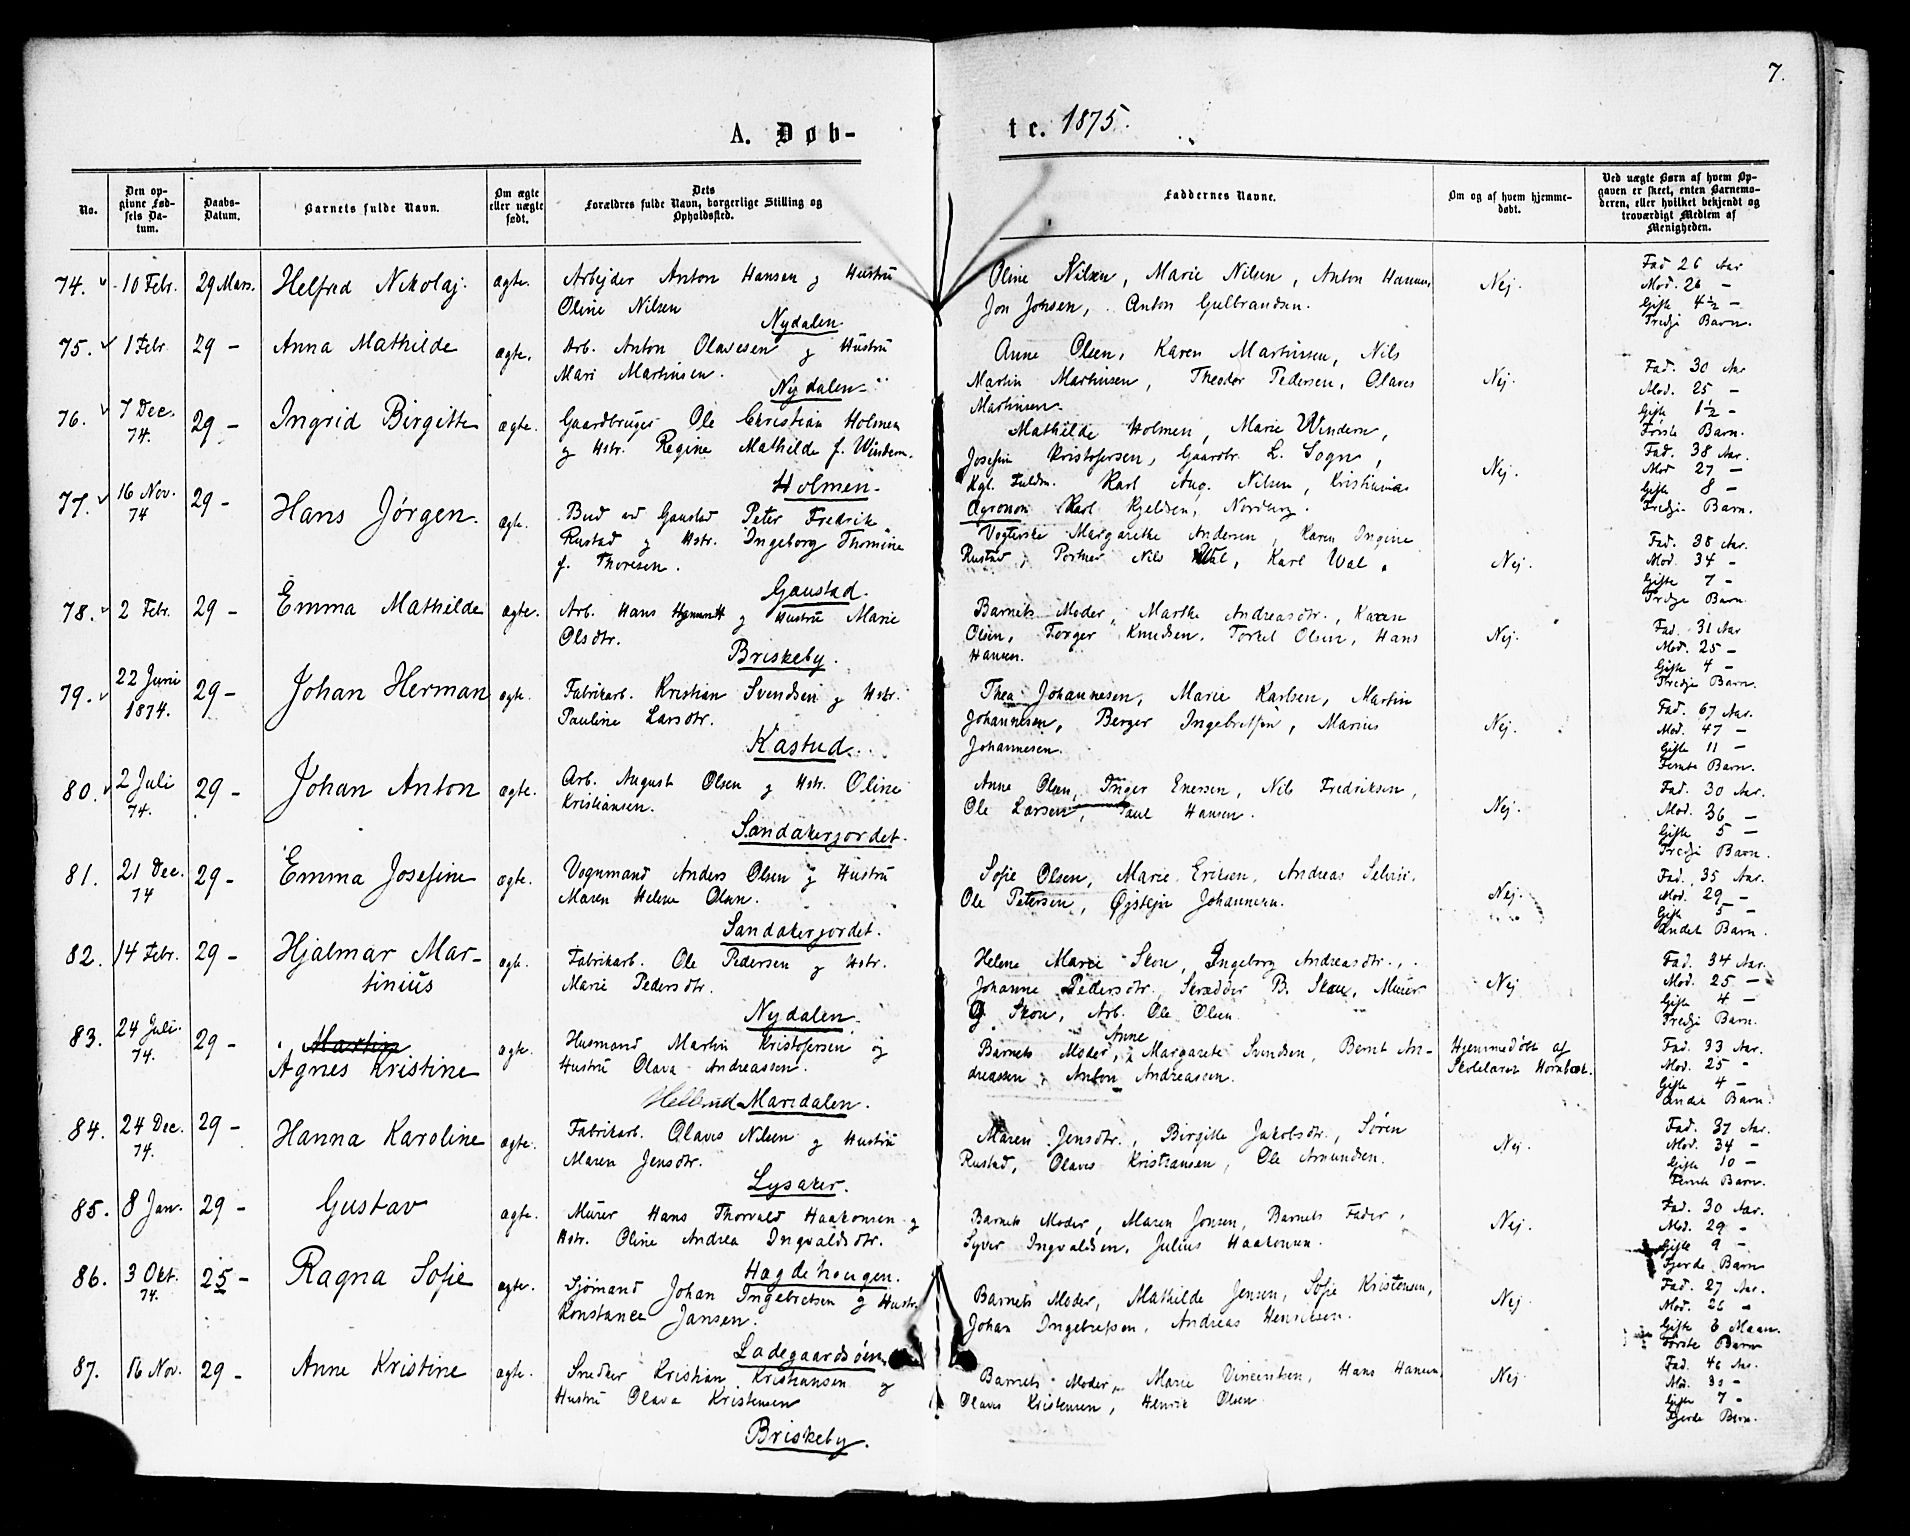 7.
A. Døb-
te. 1875.
No.
Den op-
givne Fød-
sels Da-
tum.
Daabs-
Datum.
Barnets fulde Navn.
Om ægte
eller uægte
født.
Dets
Forældres fulde Navn, borgerlige Stilling og
Opholdssted.
Faddernes Navne.
Om og af hvem hjemme-
døbt.
Ved uægte Børn af hvem Op-
gaven er skeet, enten Barnemo-
deren, eller hvilket bekjendt og
troværdigt Medlem af
Menigheden.
74. 10 Febr. 29 Mars. Helfred Nikolaj. ægte.
Arbejder Anton Hansen og Hustru
Oline Nilsen
Nydalen.
Oline Nilsen, Marie Nilsen, Anton Hansen,
Jon Jonsen, Anton Gulbrandsen.
Nej.
Fad 26 Aar
Mod. 26 –
Gifte 4½ –
Tredje Barn.
75. 1 Febr. 29 – Anna Mathilde ægte.
Arb. Anton Olavesen og Hustru
Mari Martinsen.
Nydalen.
Anne Olsen, Karen Martinsen, Nils
Martin Martinsen, Theodor Pedersen, Olaves
Martinsen.
Nej.
Fad. 30 Aar
Mod. 25 –
Gifte 1½ –
Første Barn.
76. 7 Dec. 74. 29 – Ingrid Birgitte ægte.
Gaardbruger Ole Christian Holmen
og Hstr. Regine Mathilde f. Windern.
Holmen.
Mathilde Holmen, Marie Windern,
Josefin Kristofersen, Gaardbr. L. Sogn,
Kgl. Fuldm. Karl Aug. Nilsen, Kristiania
Agronom Karl Kjeldsen, Nordberg.
Nej.
Fad. 38 Aar.
Mod 27 –
Gifte 8 –
Tredje Barn.
77. 16 Nov. 74 29 – Hans Jørgen. ægte.
Bud ved Gaustad Peter Fredrik
Rustad og Hstr. Ingeborg Thomine
f. Thoresen.
Gaustad.
Vogterske Margarethe Andersen, Karen Ingine
Rustad, Portner Nils Wal, Karl Wal.
Nej.
Fad. 38 Aar.
Mod. 34 –
Gifte 7 –
Tredje Barn.
78. 2 Febr. 29 – Emma Mathilde ægte.
Arb. Hans og Hustru Marie
Olsdtr.
Briskeby.
Barnets Moder, Marthe Andreasdtr., Karen
Olsen, Torger Knudsen, Torkel Olsen, Hans
Hansen.
Nej.
Fad. 31 Aar
Mod. 25 –
Gifte 4 –
Tredje Barn.
79. 22 Juni 1874. 29 – Johan Herman ægte.
Fabrikarb. Kristian Svendsen og Hstr.
Pauline Larsdtr.
Kastud.
Thea Johannesen, Marie Karlsen, Martin
Johannesen, Berger Ingebretsen, Marius
Johannesen.
Nej.
Fad. 67 Aar.
Mod. 47 –
Gifte 11 –
Femte Barn.
80. 2 Juli 74. 29 – Johan Anton ægte.
Arb. August Olsen og Hstr. Oline
Kristiansen.
Sandakerjordet.
Anne Olsen, Inger Enersen, Nils Fredriksen,
Ole Larsen, Paul Hansen.
Nej.
Fad. 30 Aar.
Mod. 36 –
Gifte 5 –
Tredje Barn.
81. 21 Dec. 74 29 – Emma Josefine ægte.
Vognmand Anders Olsen og Hustru
Maren Helene Olsen.
Sandakerjordet.
Sofie Olsen, Marie Eriksen, Andreas
Ole Petersen, Øjstejn Johannesen.
Nej.
Fad. 35 Aar.
Mod. 29 –
Gift 5 –
Andet Barn.
82. 14 Febr. 29 – Hjalmar Mar-
tinius ægte.
Fabrikarb. Ole Pedersen og Hstr.
Marie Pedersdtr.
Nydalen.
Helene Marie Skou, Ingeborg Andreasdtr.,
Johanne Pedersdtr., Skrædder B. Skou, Murer
G. Skou, Arb. Ole Olsen
Nej
Fad. 34 Aar.
Mod. 25 –
Gifte 4 –
Tredje Barn.
83. 24 Juli. 74. 29 – Martin
Agnes Kristine ægte.
Husmand Martin Kristofersen og
Hustru Olava Andreassen.
Maridalen.
Barnets Moder, Anne Margarete Svendsen, Bernt An-
dreassen, Anton Andreassen.
Hjemmedøbt af
Skolelærer Hornbæk.
Fad. 33 Aar.
Mod. 25 –
Gifte 4 –
Andet Barn.
84. 24 Dec. 74. 29 – Hanna Karoline ægte.
Fabrikarb. Olaves Nilsen og Hustru
Maren Jensdtr.
Lysaker.
Maren Jensdtr., Birgitte Jakobsdtr., Søren
Rustad, Olaves Kristiansen, Ole Amundsen.
Nej.
Fad. 37 Aar.
Mod. 34 –
Gifte 10 –
Femte Barn.
85. 8 Jan. 29 – Gustav ægte.
Murer Hans Thorvald Haakonsen og
Hstr. Oline Andrea Ingvaldsdtr.
Hægdehaugen.
Barnets Moder, Maren Jonsen, Barnets Fader,
Syver Ingvaldsen, Julius Haakonsen.
Nej.
Fad. 30 Aar.
Mod. 29 –
Gifte 9 –
Fjerde Barn
86. 3 Okt. 74. 25 – Ragna Sofie ægte.
Sjømand Johan Ingebretsen og Hustr.
Konstance Jansen.
Ladegaardsøen.
Barnets Moder, Mathilde Jensen, Sofie Kristensen,
Johan Ingebretsen, Andreas Henriksen.
Nej.
Fad. 27 Aar.
Mod. 26 –
Gifte 8 Maan.
Første Barn
87. 16 Nov. 29 – Anne Kristine ægte.
Snedker Kristian Kristiansen og
Hustru Olava Kristensen
Briskeby.
Barnets Moder, Marie Vincentsen, Hans Hansen,
Olaves Kristensen, Henrik Olsen.
Nej
Fad. 40 Aar.
Mod. 30 –
Gifte 7 –
Fjerde Barn.